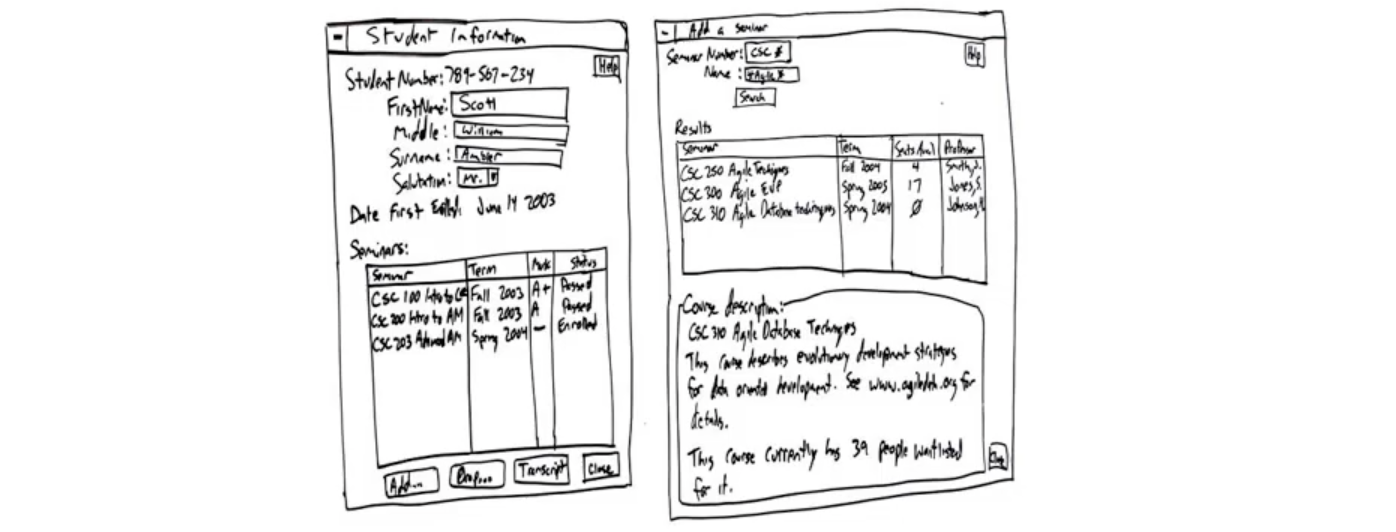 Student Information
Help
Student Number: 789-567-234
First Name: Scott
Middle: William
Surname: Ambler
Salutation: Mr.
Date First June 14 2003
Seminars:
Seminar Term Mark Status
CSC 100 Intro to Fall 2003 A+ Passed
CSC 200 Intro to AM Fall 2003 A Passed
CSC 203 Advanced AM Spring 2004 — Enrolled
Add... Drop... Transcript Close
Add a seminar
Help
Seminar Number: CSC *
Name: *Agile*
Search
Results
Seminar Term Seats Avail Professor
CSC 250 Agile Techniques Fall 2004 4 Smith, J.
CSC 300 Agile Spring 2005 17 Jones, S.
CSC 310 Agile Database techniques Spring 2004 0 Johnson,
Course description:
CSC 310 Agile Database Techniques
This course describes evolutionary development strategies
for data oriented development. See www.agiledata.org for
details.
This course currently has 39 people waitlisted
for it.
Close